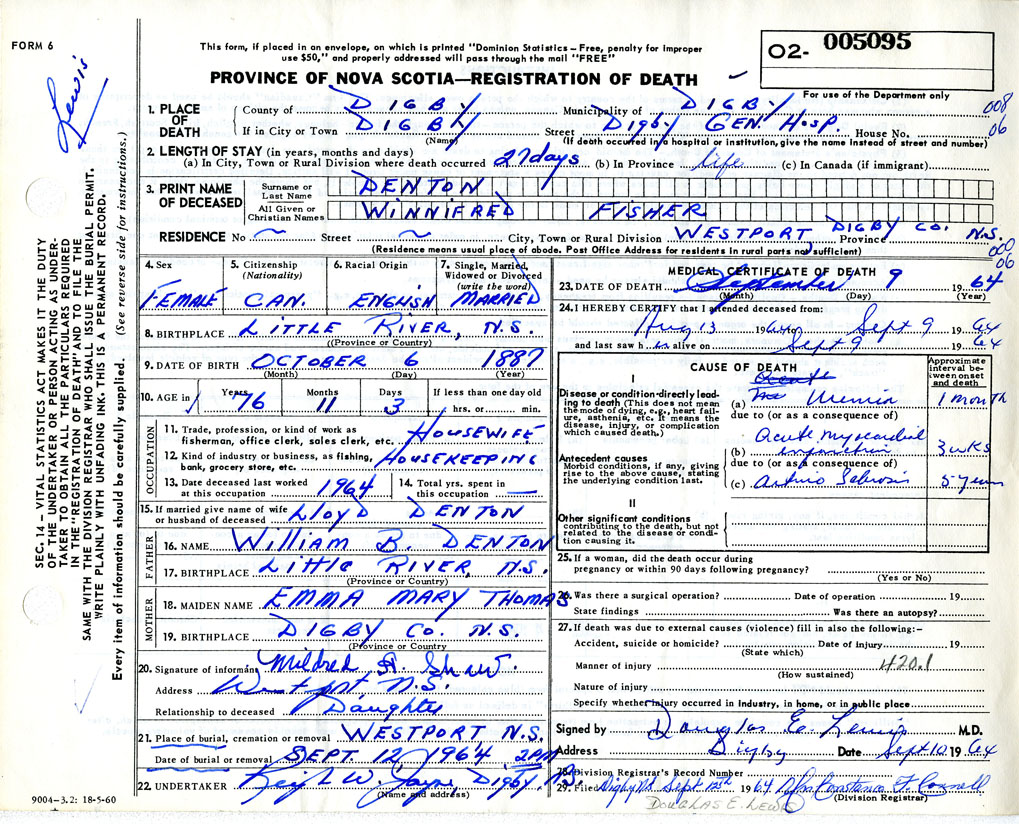 FORM 6
Lewis
This form, if placed in an envelope, on which is printed "Dominion Statistics – Free, penalty for improper
use $50," and properly addressed will pass through the mail "FREE"
PROVINCE OF NOVA SCOTIA—REGISTRATION OF DEATH
O2- 005095
For use of the Department only
008
06
1. PLACE OF DEATH
County of DIGBY Municipality of DIGBY
If in City or Town DIGBY Street Digby GEN. HOSP. House No.
(Name) (If death occurred in a hospital or institution, give the name instead of street and number)
2. LENGTH OF STAY (in years, months and days)
(a) In City, Town or Rural Division where death occurred 27 days (b) In Province life (c) In Canada (if immigrant)
3. PRINT NAME OF DECEASED
Surname or Last Name DENTON
All Given or Christian Names WINNIFRED FISHER
RESIDENCE No ~ Street ~ City, Town or Rural Division WESTPORT, DIGBY CO. Province N.S.
(Residence means usual place of abode. Post Office Address for residents in rural parts not sufficient)
000
06
4. Sex FEMALE
5. Citizenship (Nationality) CAN.
6. Racial Origin ENGLISH
7. Single, Married, Widowed or Divorced (write the word) MARRIED
8. BIRTHPLACE LITTLE RIVER, N.S.
(Province or Country)
9. DATE OF BIRTH OCTOBER 6 1887
(Month) (Day) (Year)
10. AGE in Years 76 Months 11 Days 3 If less than one day old hrs. or min.
OCCUPATION
11. Trade, profession, or kind of work as
fisherman, office clerk, sales clerk, etc. HOUSEWIFE
12. Kind of industry or business, as fishing,
bank, grocery store, etc. HOUSEKEEPING
13. Date deceased last worked
at this occupation 1964
14. Total yrs. spent in
this occupation —
15. If married give name of wife
or husband of deceased LLOYD DENTON
FATHER
16. NAME WILLIAM B. DENTON
17. BIRTHPLACE LITTLE RIVER, N.S.
(Province or Country)
MOTHER
18. MAIDEN NAME EMMA MARY THOMAS
19. BIRTHPLACE DIGBY CO. N.S.
(Province or Country)
20. Signature of informant Mildred A. Shaw.
Address Westport, N.S.
Relationship to deceased Daughter
21. Place of burial, cremation or removal WESTPORT N.S.
Date of burial or removal SEPT. 12, 1964 2PM
22. UNDERTAKER Digby, N.S.
(Name and address)
9004-3.2: 18-5-60
MEDICAL CERTIFICATE OF DEATH
23. DATE OF DEATH September 9 1964
(Month) (Day) (Year)
24. I HEREBY CERTIFY that I attended deceased from:
Aug 13 1964 to Sept 9 1964
and last saw her alive on Sept 9 1964
CAUSE OF DEATH
Approximate interval between onset and death
I
Disease or condition directly leading to death (This does not mean the mode of dying, e.g., heart failure, asthenia, etc. It means the disease, injury, or complication which caused death.)
(a) Uremia 1 month
due to (or as a consequence of)
Antecedent causes
Morbid conditions, if any, giving rise to the above cause, stating the underlying condition last.
Acute myocardial
(b) infarction 3 wks
due to (or as a consequence of)
(c) Arterio Sclerosis 5 years
II
Other significant conditions
contributing to the death, but not related to the disease or condition causing it.
25. If a woman, did the death occur during
pregnancy or within 90 days following pregnancy?
(Yes or No)
26. Was there a surgical operation? Date of operation 19
State findings Was there an autopsy?
27. If death was due to external causes (violence) fill in also the following:–
Accident, suicide or homicide? Date of injury 19
(State which)
Manner of injury 420.1
(How sustained)
Nature of injury
Specify whether injury occurred in Industry, in home, or in public place
Signed by Douglas E. Lewis M.D.
Address Digby Date Sept 10 1964
28. Division Registrar's Record Number
29. Filed Digby NS Sept 12th 1964 Constance F. Connell
(Division Registrar)
DOUGLAS E. LEWIS
SEC. 14 – VITAL STATISTICS ACT MAKES IT THE DUTY
OF THE UNDERTAKER OR PERSON ACTING AS UNDER-
TAKER TO OBTAIN ALL THE PARTICULARS REQUIRED
IN THE "REGISTRATION OF DEATH" AND TO FILE THE
SAME WITH THE DIVISION REGISTRAR WHO SHALL ISSUE THE BURIAL PERMIT.
WRITE PLAINLY WITH UNFADING INK. THIS IS A PERMANENT RECORD.
Every item of information should be carefully supplied. (See reverse side for instructions.)